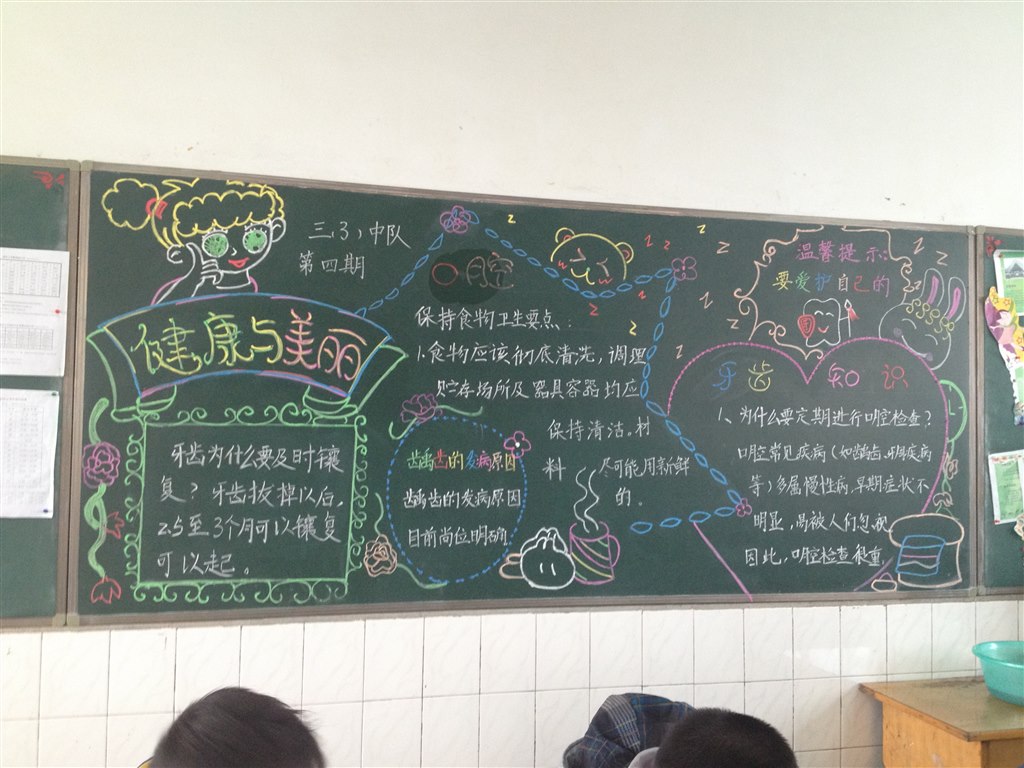 三(3)中队
第四期
健康与美丽
牙齿为什么要及时镶
复？牙齿拔掉以后，
2.5至3个月可以镶复
可以起。
口腔
保持食物卫生要点：
1.食物应该彻底清洗，调理
贮存场所及器具容器均应
保持清洁。材
料尽可能用新鲜
的。
龋齿的发病原因
龋齿的发病原因
目前尚位明确
温馨提示：
要爱护自己的
牙齿知识
1、为什么要定期进行口腔检查？
口腔常见疾病（如龋齿、牙周疾病
等）多属慢性病，早期症状不
明显，易被人们忽视
因此，口腔检查很重